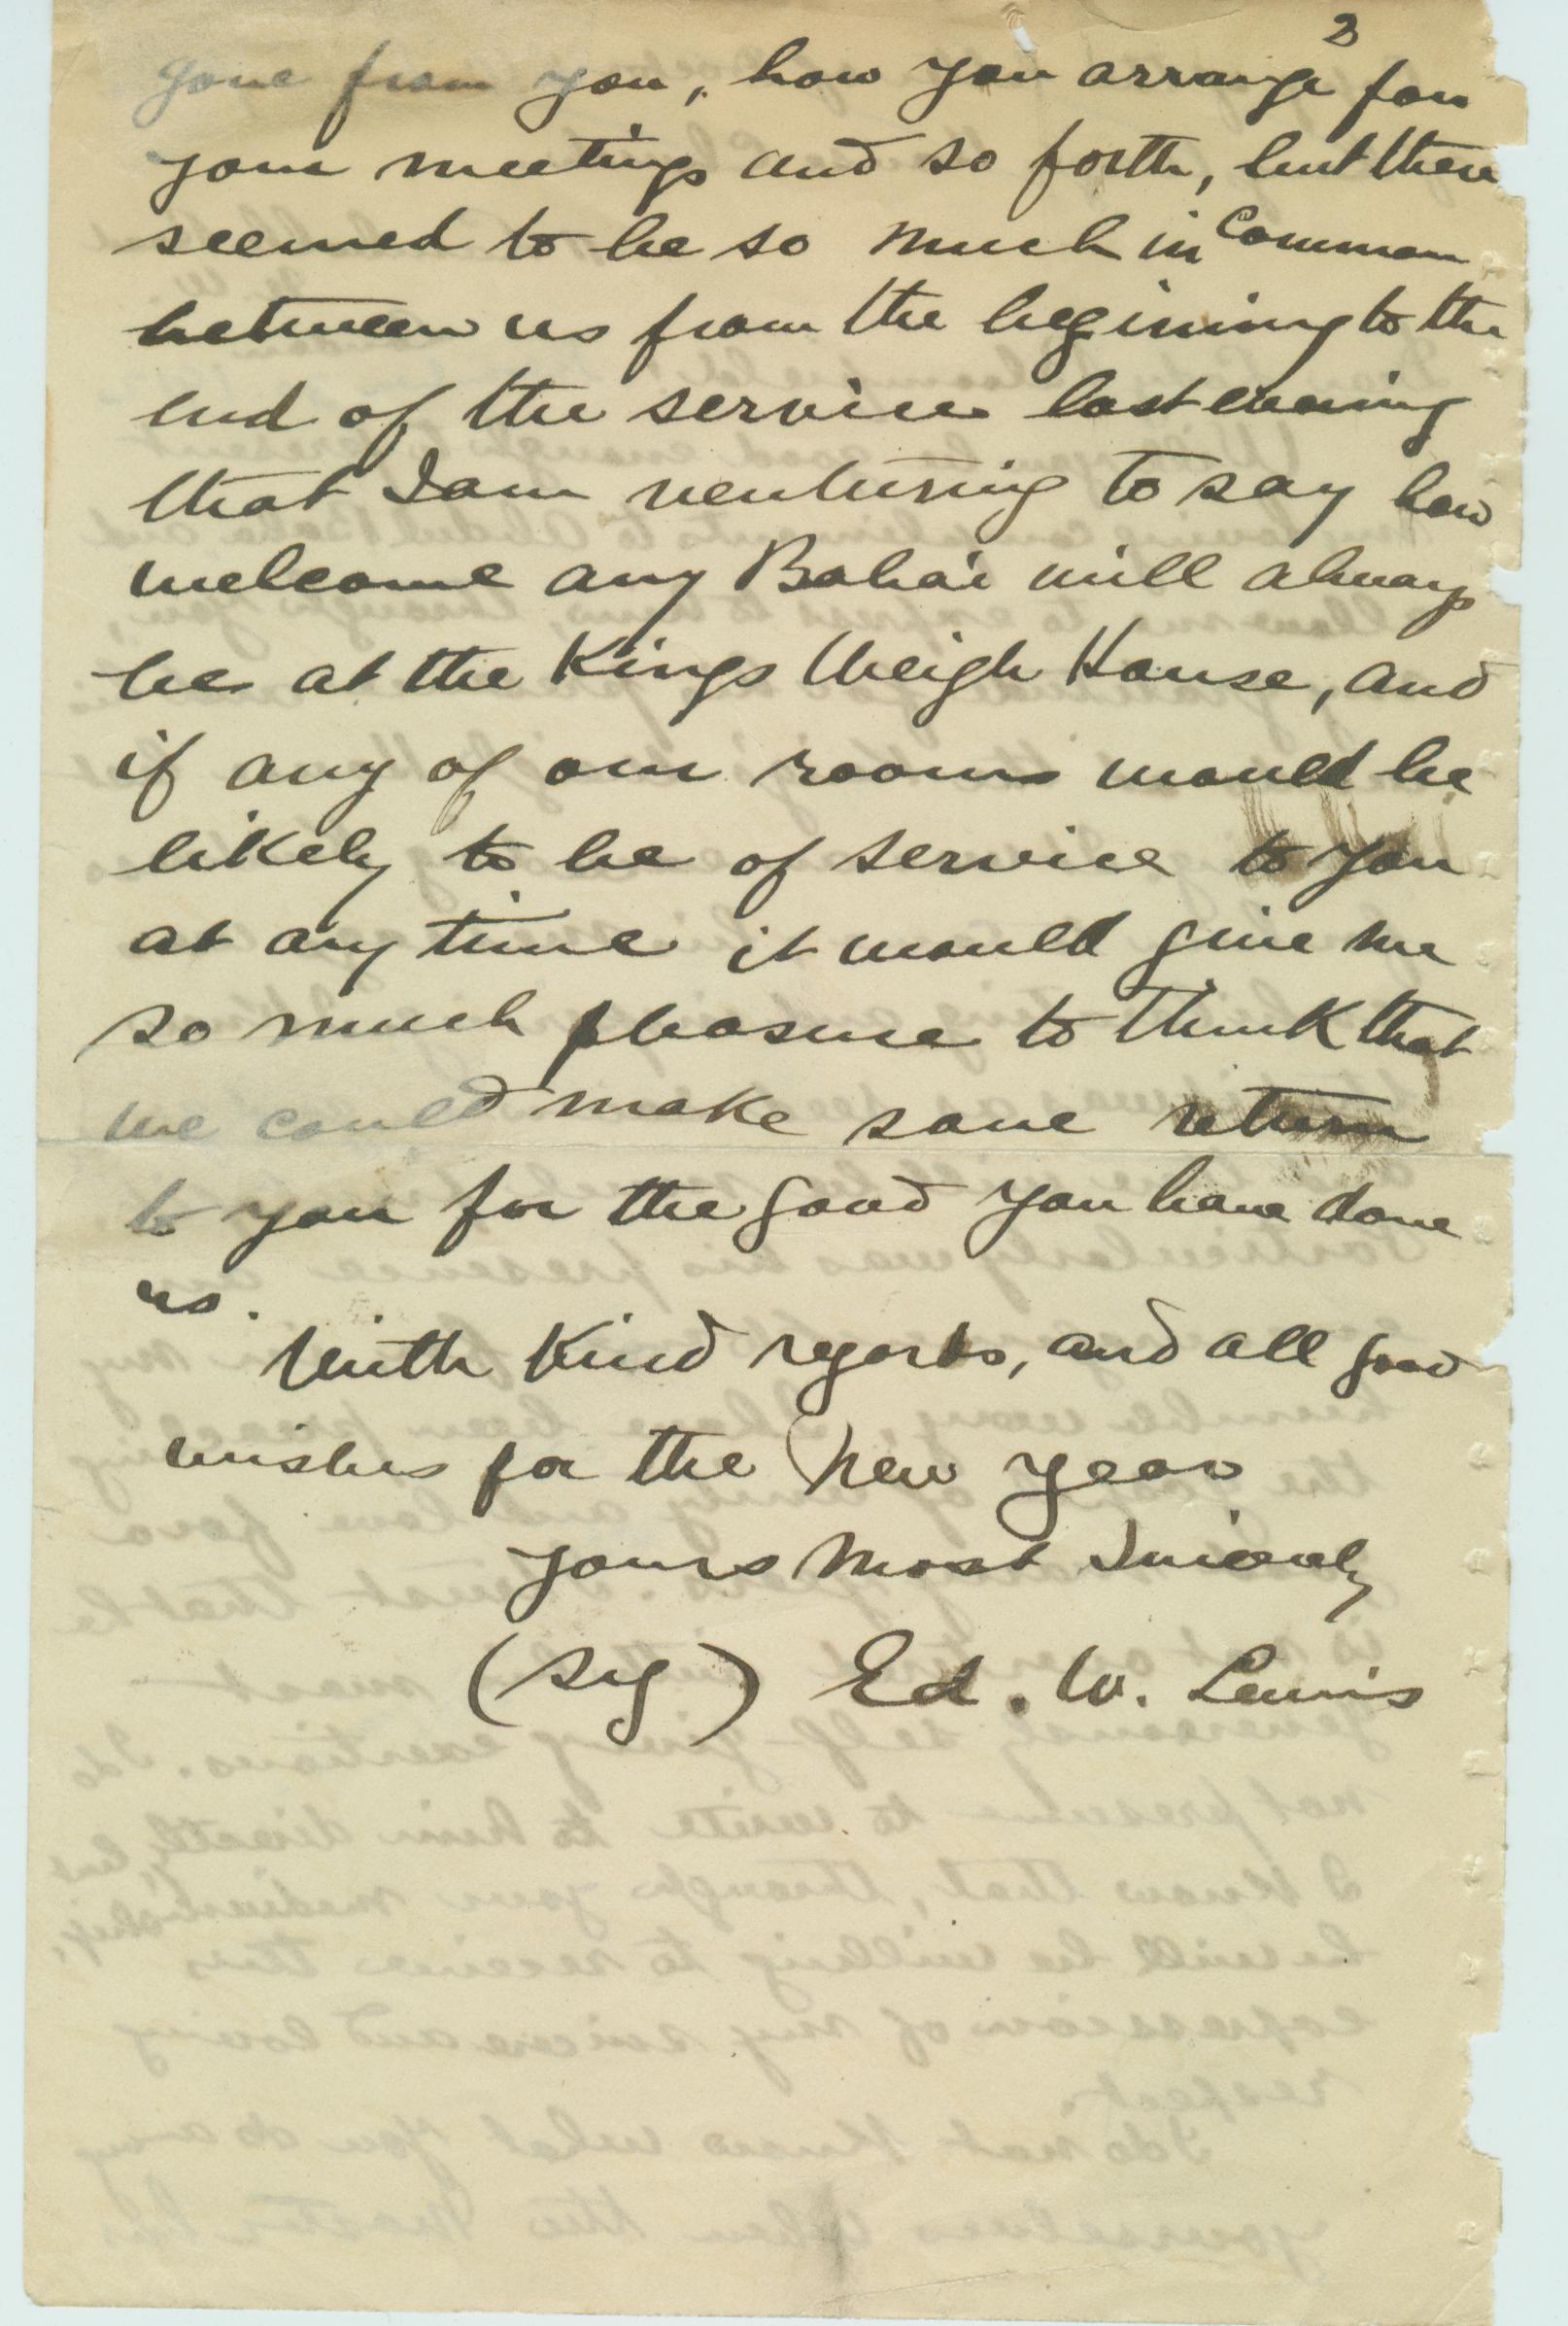 2
gone from you, how you arrange for
your meetings and so forth, but there
seemed to be so much in Common
between us from the begining to the
end of the service last evening
that I am venturing to say how
welcome any Bahai will always
be at the Kings Weigh House, and
if any of our rooms would be
likely to be of service to you
at any time it would give me
so much pleasure to think that
we could make some return
to you for the good you have done
us.
With Kind regards, and all good
wishes for the New Year
yours Most Sincerely
(sig) Ed. W. Lewis